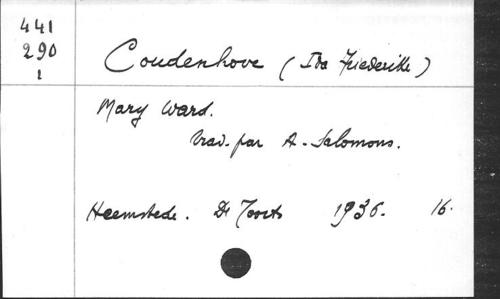 441
290
1
Coudenhove (Ida Friederike)
Mary Ward.
trad. par A. Salomons.
Heemstede. De Toorts 1936. 16.